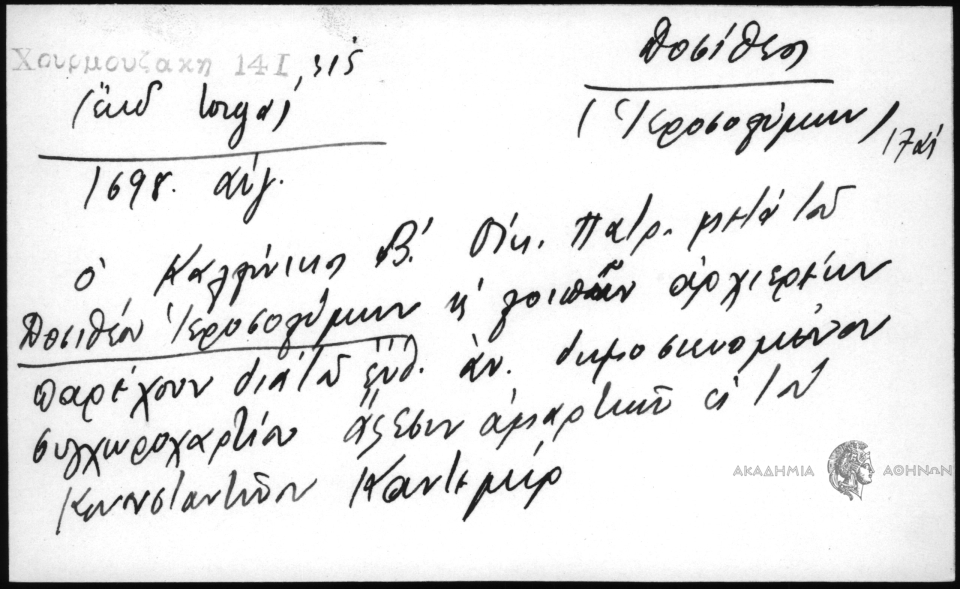 Χουρμουζακη 14Ι, εις
(ἔκδ Iorga)
1698. αὐγ.
Δοσίθεος
(Ἱεροσολύμων) 17 αἰ
ὁ Καλλίνικος Β΄. Οἰκ. Πατρ. μετὰ τοῦ
Δοσιθέου Ἱεροσολύμων κ̀ λοιπῶν ἀρχιερέων
παρέχουν διὰ τοῦ ἐνθ. ἀν. δημοσιευομένου
συγχωροχαρτίου ἄφεσιν ἁμαρτιῶν εἰς τὸν
Κωνσταντῖνον Καντεμίρ
ΑΚΑΔΗΜΙΑ ΑΘΗΝΩΝ